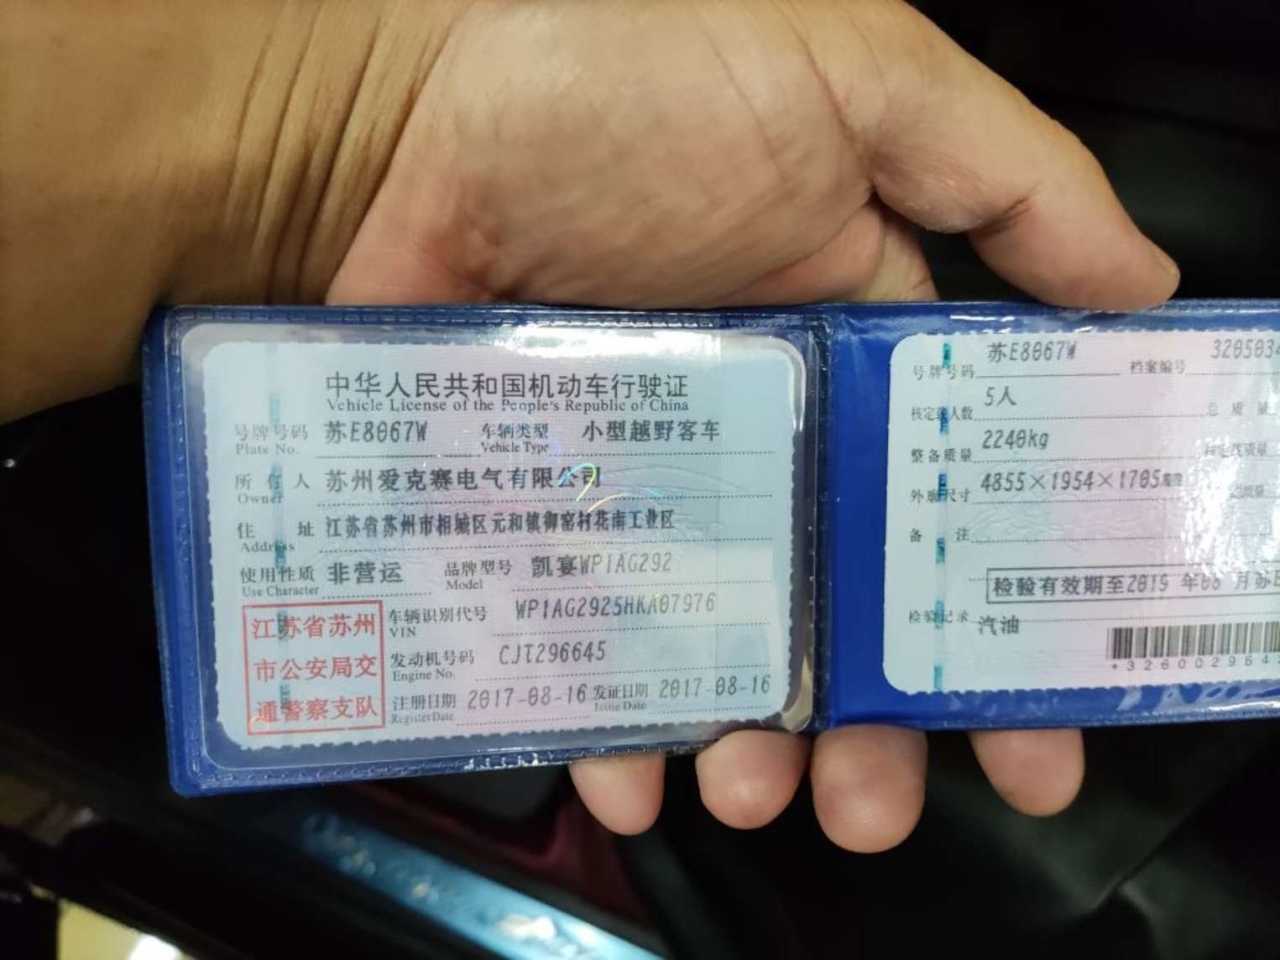 中华人民共和国机动车行驶证
Vehicle License of the People's Republic of China
号牌号码 苏E8067W 车辆类型 小型越野客车
Plate No. Vehicle Type
所有人 苏州爱克赛电气有限公司
Owner
住址 江苏省苏州市相城区元和镇御窑村花南工业区
Address
使用性质 非营运 品牌型号 凯宴WP1AG292
Use Character Model
江苏省苏州
市公安局交
通警察支队
车辆识别代号 WP1AG2925HKA07976
VIN
发动机号码 CJT296645
Engine No.
注册日期 2017-08-16 发证日期 2017-08-16
Register Date Issue Date
号牌号码 苏E8067W 档案编号 3205034
核定载人数 5人 总质量
整备质量 2240kg
外廓尺寸 4855×1954×1705
备注
检验有效期至2019年08月苏E
检验记录
汽油
*326002964